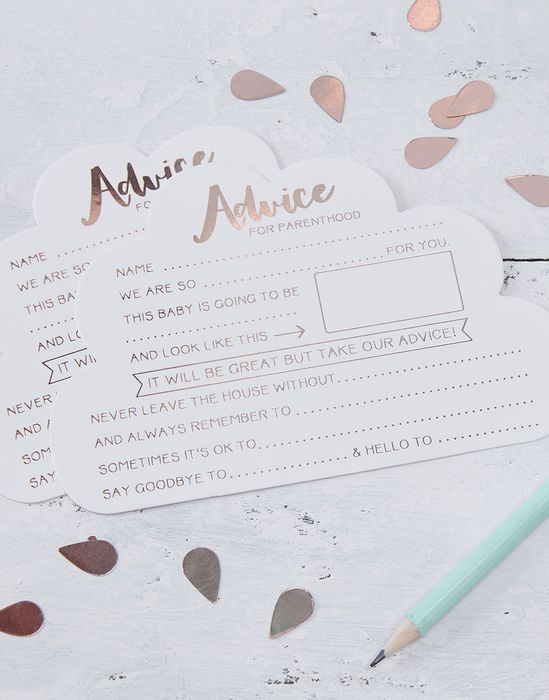 Advice
FOR PARENTHOOD
NAME
WE ARE SO FOR YOU.
THIS BABY IS GOING TO BE
AND LOOK LIKE THIS
IT WILL BE GREAT BUT TAKE OUR ADVICE!
NEVER LEAVE THE HOUSE WITHOUT
AND ALWAYS REMEMBER TO
SOMETIMES IT'S OK TO
SAY GOODBYE TO & HELLO TO
Advice
FO
NAME
WE ARE SO
THIS BAB
AND LO
IT WI
NEVER
AND A
SOM
SAY